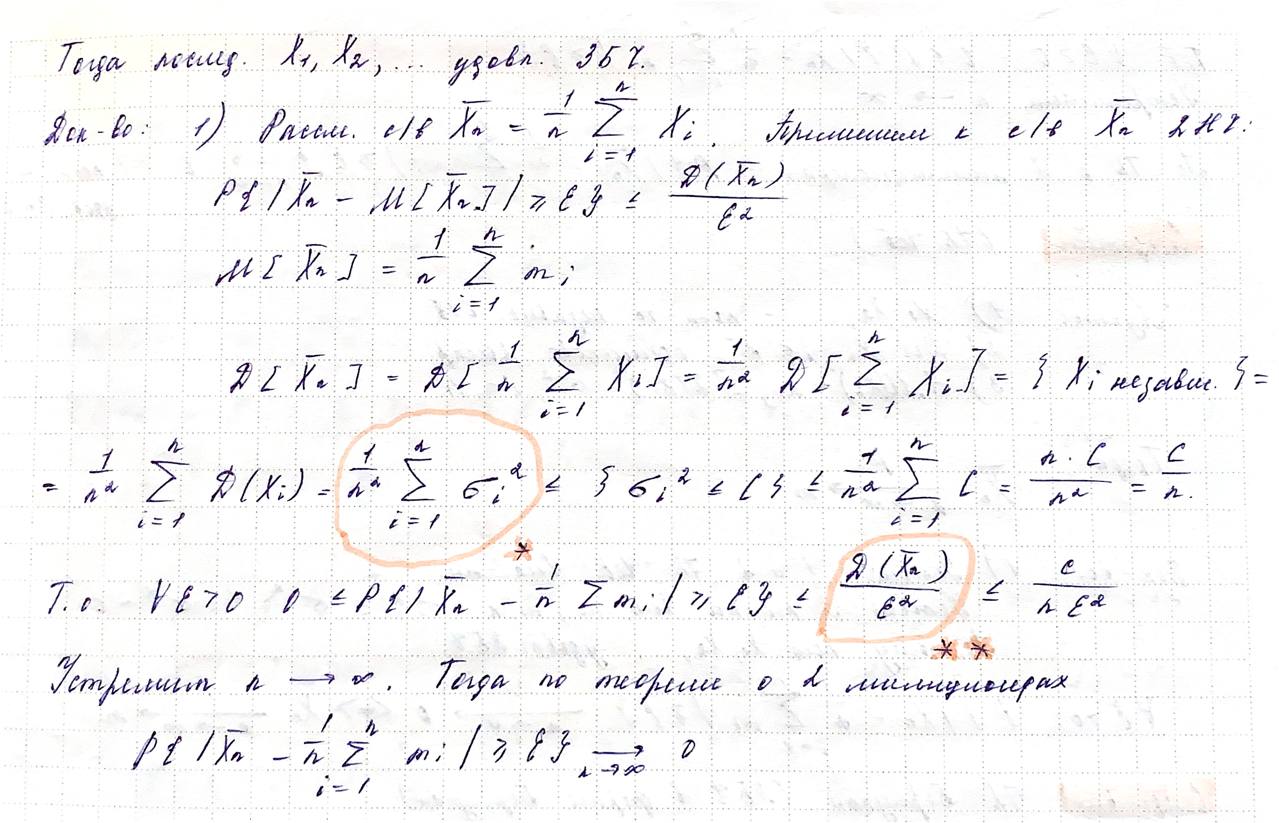 Тогда послед. X₁, X₂, ... удовл. ЗБЧ.
Док-во: 1) Рассм. с/в X̄ₙ = 1/n ∑_{i=1}^{n} Xᵢ. Применим к с/в X̄ₙ 2НЧ:
P{|X̄ₙ - M[X̄ₙ]| ⩾ ε} ≤ D(X̄ₙ)/ε²
M[X̄ₙ] = 1/n ∑_{i=1}^{n} mᵢ
D[X̄ₙ] = D[1/n ∑_{i=1}^{n} Xᵢ] = 1/n² D[∑_{i=1}^{n} Xᵢ] = {Xᵢ независ.} =
= 1/n² ∑_{i=1}^{n} D(Xᵢ) = 1/n² ∑_{i=1}^{n} σᵢ² ≤ {σᵢ² ≤ C} ≤ 1/n² ∑_{i=1}^{n} C = n·C/n² = C/n.
*
Т.о. ∀ε > 0 0 ≤ P{|X̄ₙ - 1/n ∑mᵢ| ⩾ ε} ≤ D(X̄ₙ)/ε² ≤ C/nε²
**
Устремим n → ∞. Тогда по теореме о 2 милиционерах
P{|X̄ₙ - 1/n ∑_{i=1}^{n} mᵢ| ⩾ ε} →_{n→∞} 0